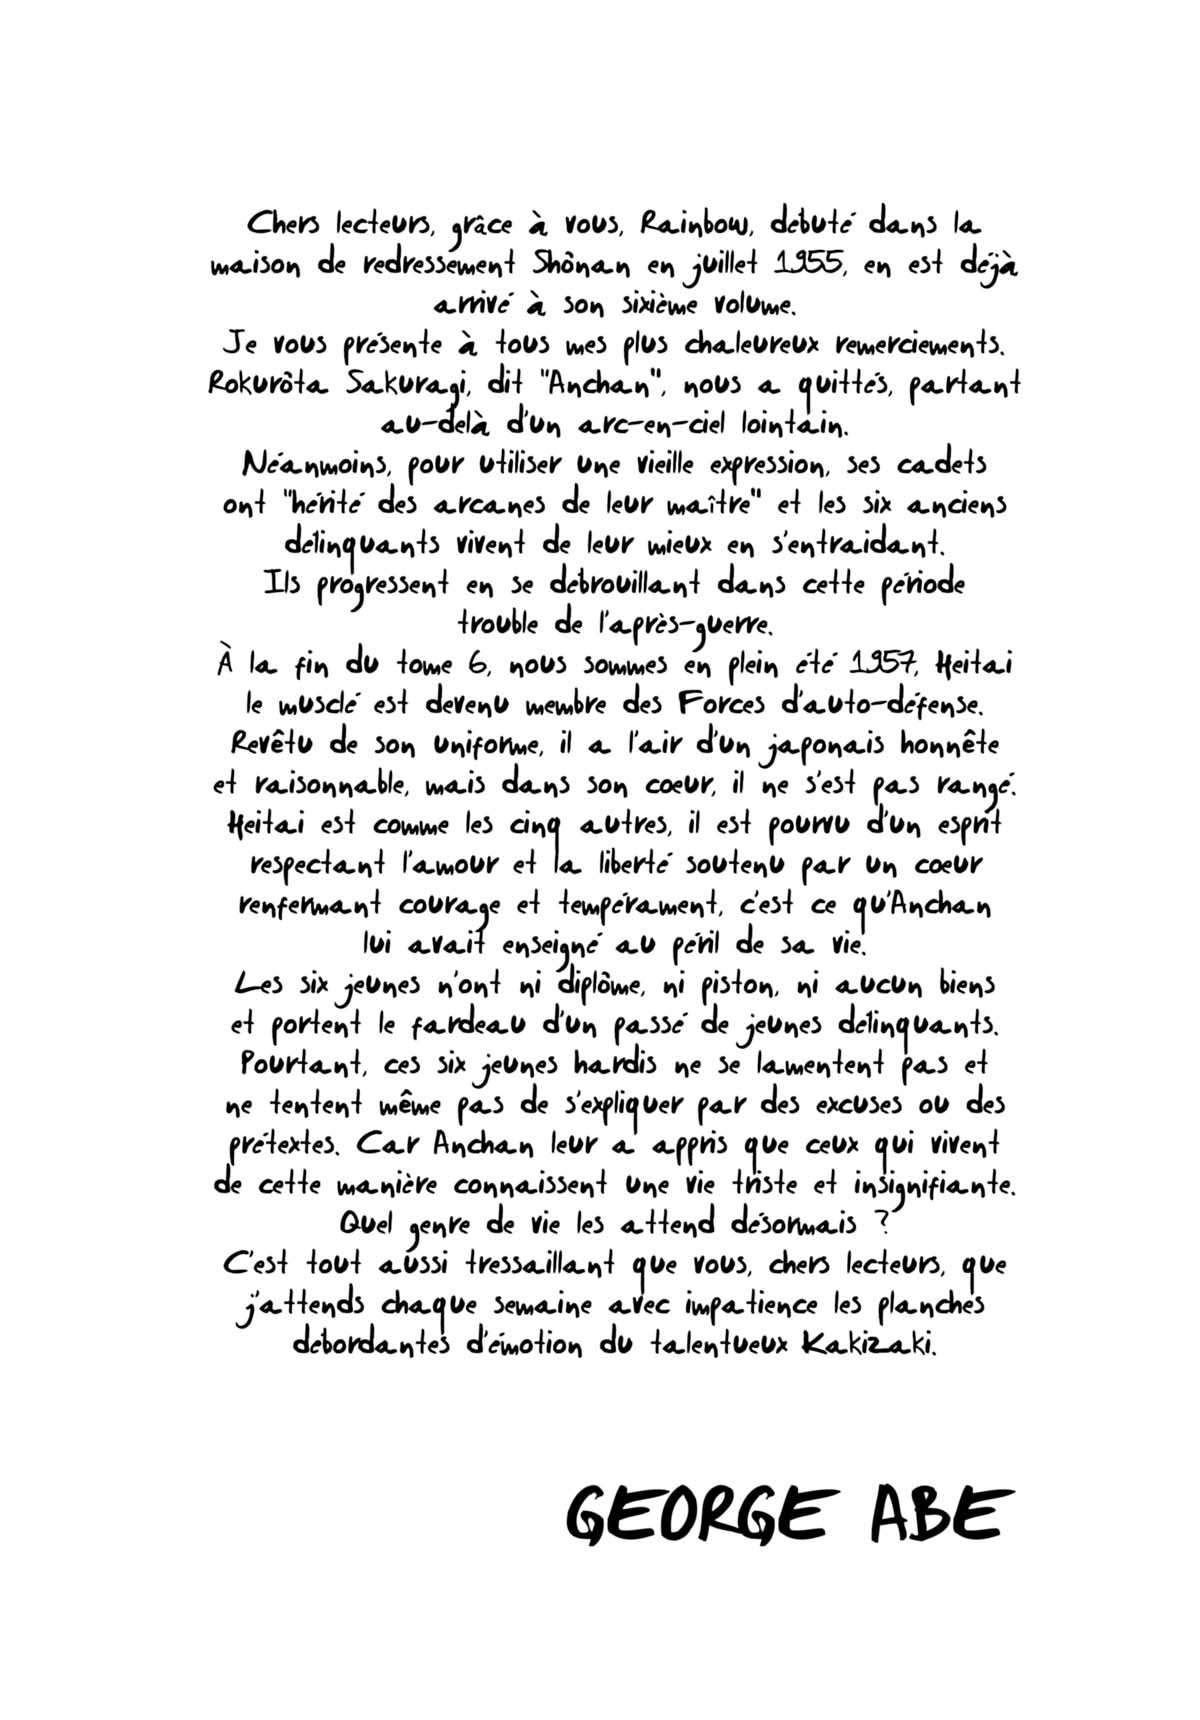 Chers lecteurs, grâce à vous, Rainbow, débuté dans la
maison de redressement Shônan en juillet 1955, en est déjà
arrivé à son sixième volume.
Je vous présente à tous mes plus chaleureux remerciements.
Rokurôta Sakuragi, dit "Anchan", nous a quittés, partant
au-delà d'un arc-en-ciel lointain.
Néanmoins, pour utiliser une vieille expression, ses cadets
ont "hérité des arcanes de leur maître" et les six anciens
délinquants vivent de leur mieux en s'entraidant.
Ils progressent en se débrouillant dans cette période
trouble de l'après-guerre.
À la fin du tome 6, nous sommes en plein été 1957, Heitai
le musclé est devenu membre des Forces d'auto-défense.
Revêtu de son uniforme, il a l'air d'un japonais honnête
et raisonnable, mais dans son coeur, il ne s'est pas rangé.
Heitai est comme les cinq autres, il est pourvu d'un esprit
respectant l'amour et la liberté soutenu par un coeur
renfermant courage et tempérament, c'est ce qu'Anchan
lui avait enseigné au péril de sa vie.
Les six jeunes n'ont ni diplôme, ni piston, ni aucun biens
et portent le fardeau d'un passé de jeunes délinquants.
Pourtant, ces six jeunes hardis ne se lamentent pas et
ne tentent même pas de s'expliquer par des excuses ou des
prétextes. Car Anchan leur a appris que ceux qui vivent
de cette manière connaissent une vie triste et insignifiante.
Quel genre de vie les attend désormais ?
C'est tout aussi tressaillant que vous, chers lecteurs, que
j'attends chaque semaine avec impatience les planches
débordantes d'émotion du talentueux Kakizaki.
GEORGE ABE